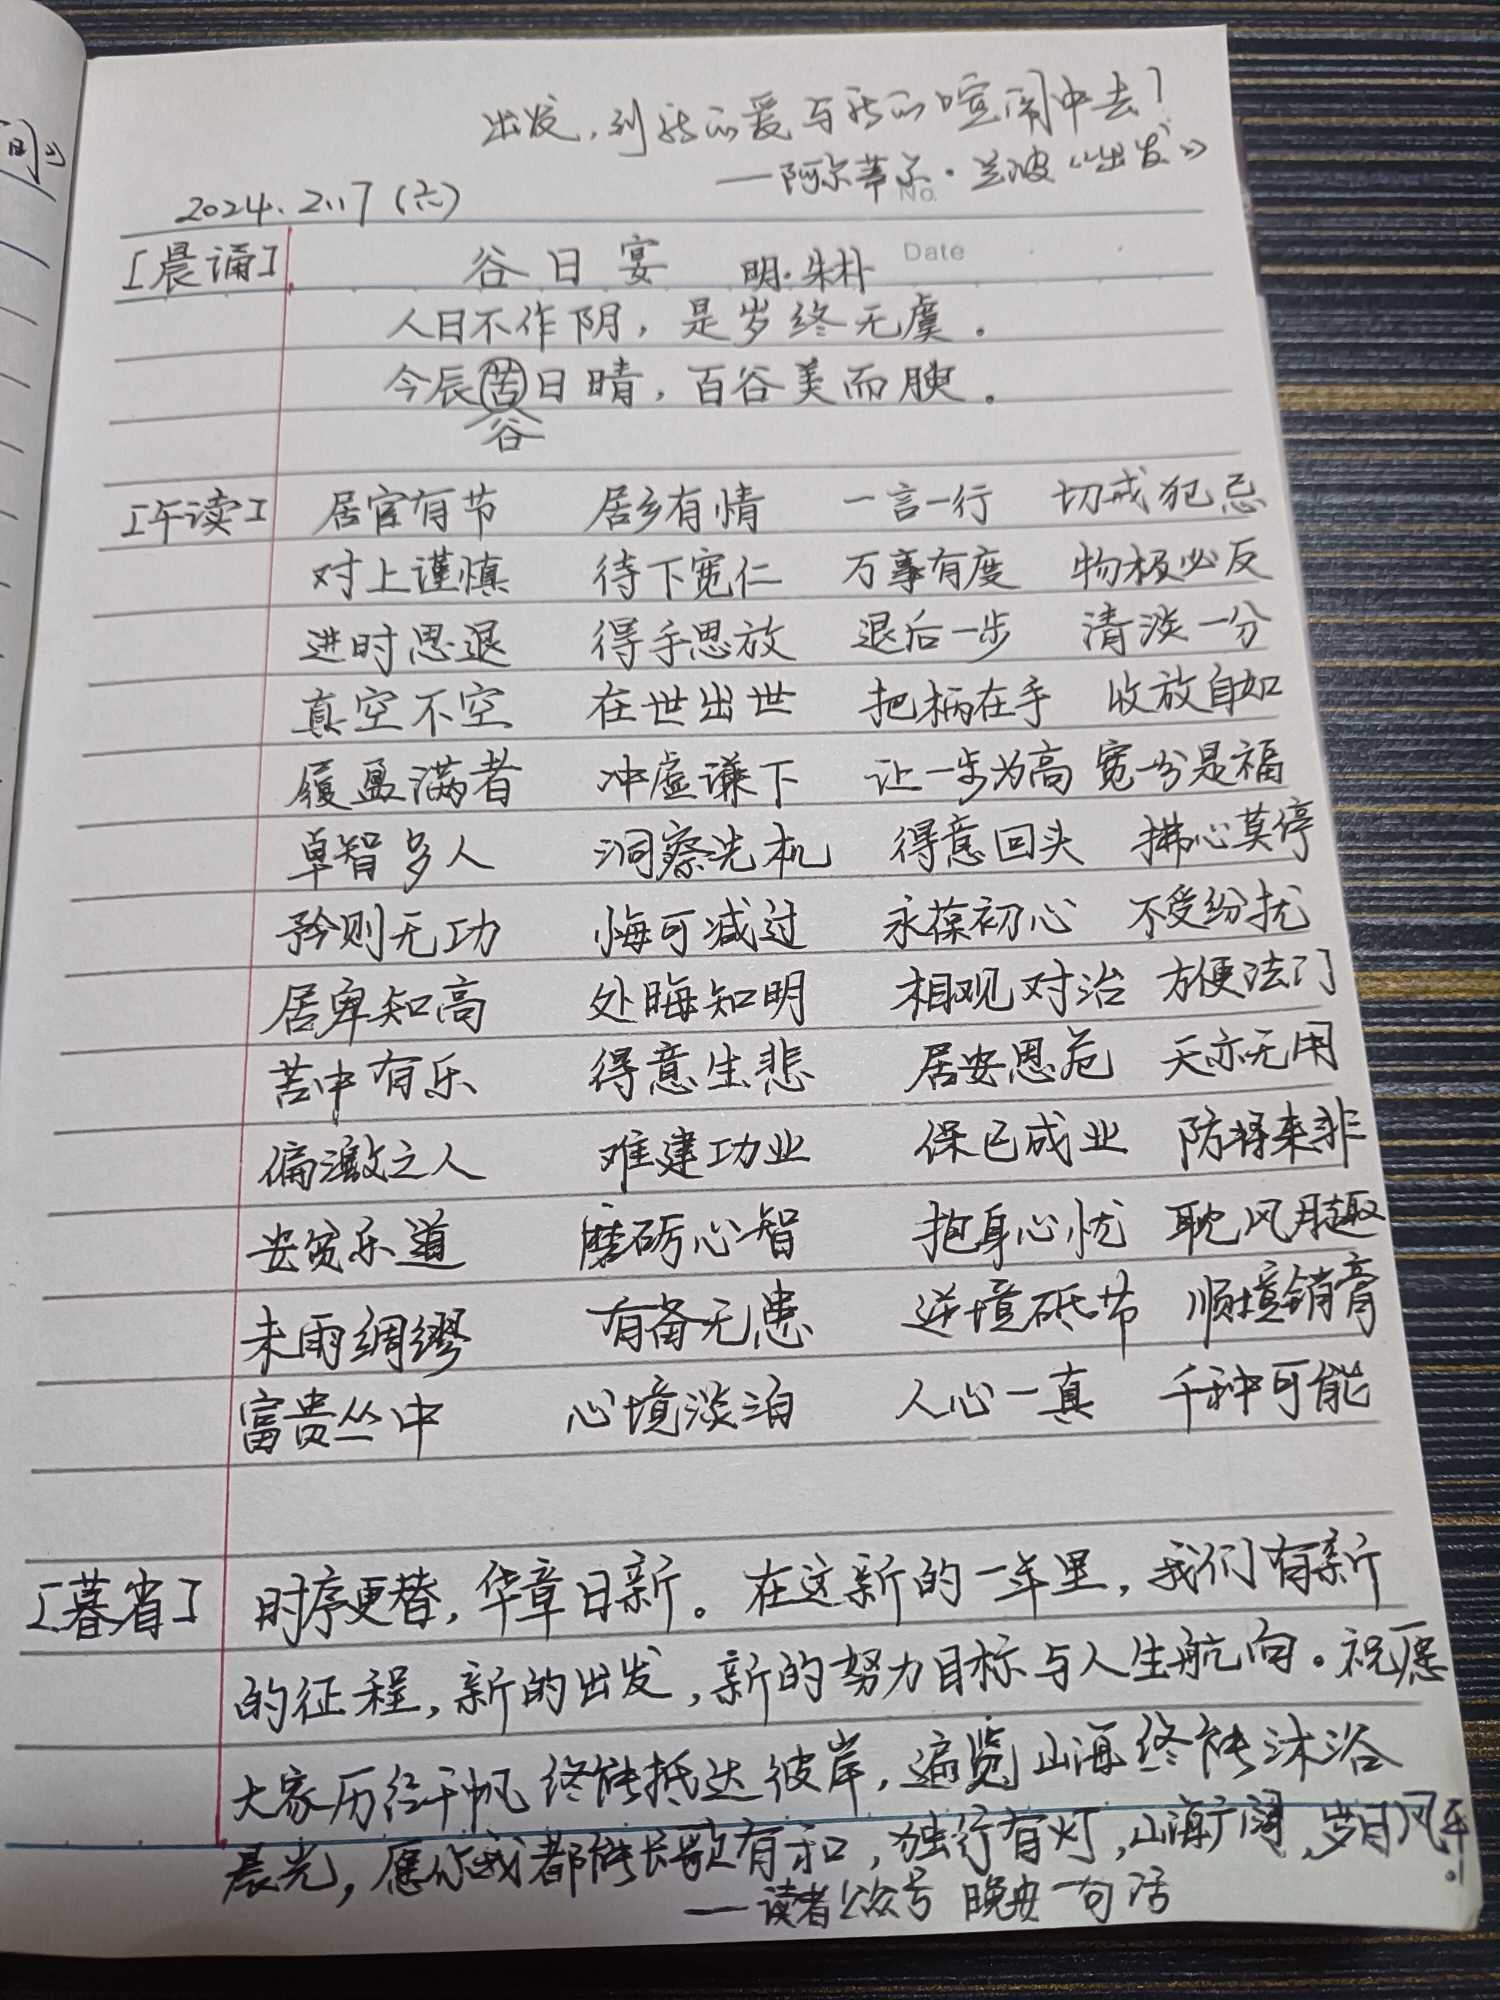 出发，到新的爱与新的喧闹中去！
——阿尔蒂尔·兰波《出发》
No.
2024.2.17（六）
Date
[晨诵] 谷日宴 明·朱朴
人日不作阴，是岁终无虞。
今辰苦日晴，百谷美而腴。
谷
[午读] 居官有节 居乡有情 一言一行 切戒犯忌
对上谨慎 待下宽仁 万事有度 物极必反
进时思退 得手思放 退后一步 清淡一分
真空不空 在世出世 把柄在手 收放自如
履盈满者 冲虚谦下 让一步为高 宽一分是福
卓智多人 洞察先机 得意回头 拂心莫停
矜则无功 悔可减过 永葆初心 不受纷扰
居卑知高 处晦知明 相观对治 方便法门
苦中有乐 得意生悲 居安思危 天亦无用
偏激之人 难建功业 保已成业 防将来非
安贫乐道 磨砺心智 抱身心忧 耽风月趣
未雨绸缪 有备无患 逆境砥节 顺境销膏
富贵丛中 心境淡泊 人心一真 千种可能
[暮省] 时序更替，华章日新。在这新的一年里，我们有新
的征程，新的出发，新的努力目标与人生航向。祝愿
大家历经千帆终能抵达彼岸，遍览山海终能沐浴
晨光，愿你我都能长歌有和，独行有灯，山海广阔，岁月风平。
——读者公众号 晚安一句话